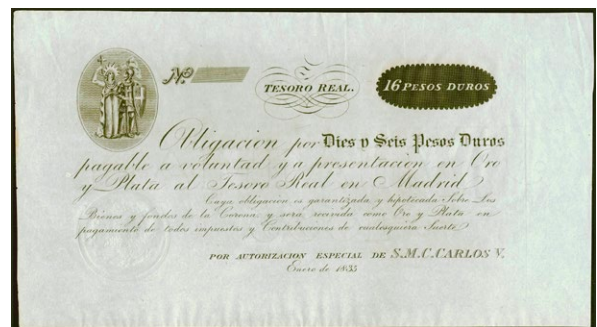 Nº
TESORO REAL.
16 PESOS DUROS
Obligacion por Dies y Seis Pesos Duros
pagable a voluntad y a presentacion en Oro
y Plata al Tesoro Real en Madrid
Cuya obligacion es garantizada y hipotecada Sobre Los
Bienes y fondos de la Corona y será recivida como Oro y Plata en
pagamiento de todos impuestos y Contribuciones de cualesquiera Suerte
POR AUTORIZACION ESPECIAL DE S.M.C. CARLOS V.
Enero de 1835